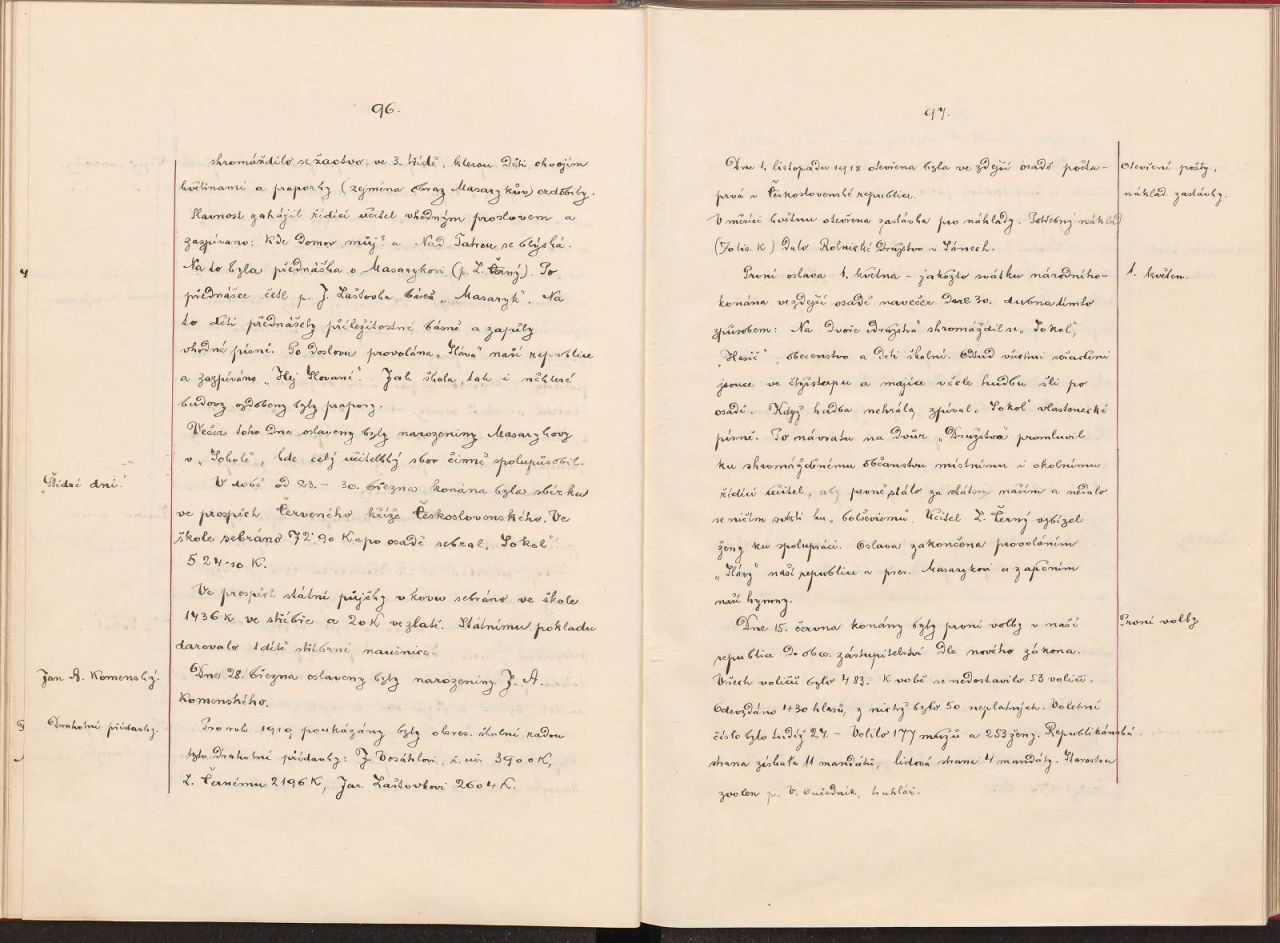 96.
shromáždilo se žactvo ve 3. třídě, kterou děti chvojím
květinami a praporky (zejména obraz Masarykův) ozdobily.
Slavnost zahájil řídící učitel vhodným proslovem a
zazpíváno: Kde domov můj? a Nad Tatrou se blýská.
Na to byla přednáška o Masarykovi (p. L. Černý). Po
přednášce četl p. J. Laštovka báseň „Masaryk“. Na
to děti přednášely příležitostné básně a zapěly
vhodné písně. Po doslovu provolána „Sláva“ naší republice
a zazpíváno „Hej Slované“. Jak škola, tak i některé
budovy ozdobeny byly prapory.
Večer toho dne oslaveny byly narozeniny Masarykovy
v „Sokole“, kde celý učitelský sbor činně spolupůsobil.
„Štědré dni.“
V době od 23. – 30. března konána byla sbírka
ve prospěch Červeného kříže Československého. Ve
škole sebráno 72·90 K a po osadě sebral „Sokol“
524·10 K.
Ve prospěch státní půjčky v kovu sebráno ve škole
1436 K ve stříbře a 20 K ve zlatě. Státnímu pokladu
darovalo 1 dítě stříbrné naušnice.
Jan A. Komenský.
Dne 28. března oslaveny byly narozeniny J. A.
Komenského.
Drahotní přídavky.
Pro rok 1919 poukázány byly okres. školní radou
tyto drahotní přídavky: J. ř. uč. 3900 K,
L. Černému 2196 K, Jar. Laštovkovi 2604 K.
97.
Dne 1. listopadu 1918 otevřena byla ve zdejší osadě pošta –
prvá v Československé republice.
Otevření pošty,
náklad. zastávky.
V měsíci květnu otevřena zastávka pro náklady. Potřebný náklad
(70 tis. K) dalo Rolnické Družstvo v Lánech.
První oslava 1. května – jakožto svátku národního –
1. květen.
konána ve zdejší osadě navečer dne 30. dubna tímto
způsobem: Na dvoře „Družstva“ shromáždil se „Sokol“,
„Hasič“, obecenstvo a děti školní. Odtud všichni seřaděni
jsouce ve čtyřstupu a majíce v čele hudbu šli po
osadě. Když hudba nehrála, zpíval „Sokol“ vlastenecké
písně. Po návratu na dvůr „Družstva“ promluvil
ku shromážděnému občanstvu místnímu i okolnímu
řídící učitel, aby pevně stálo za státem naším a nedalo
se ničím svésti ku „bolševismu“. Učitel L. Černý vybízel
ženy ku spolupráci. Oslava zakončena provoláním
„Slávy“ naší republice a pres. Masarykovi a zapěním
naší hymny.
První volby
Dne 15. června konány byly první volby v naší
republice do obec. zástupitelství dle nového zákona.
Všech voličů bylo 483. K volbě se nedostavilo 53 voličů.
Odevzdáno 430 hlasů, z nichž bylo 50 neplatných. Volební
číslo bylo tudíž 24. – Volilo 177 mužů a 253 ženy. Republikánská
strana získala 11 mandátů, lidová strana 4 mandáty. Starostou
zvolen p. V. Ouředník, truhlář.